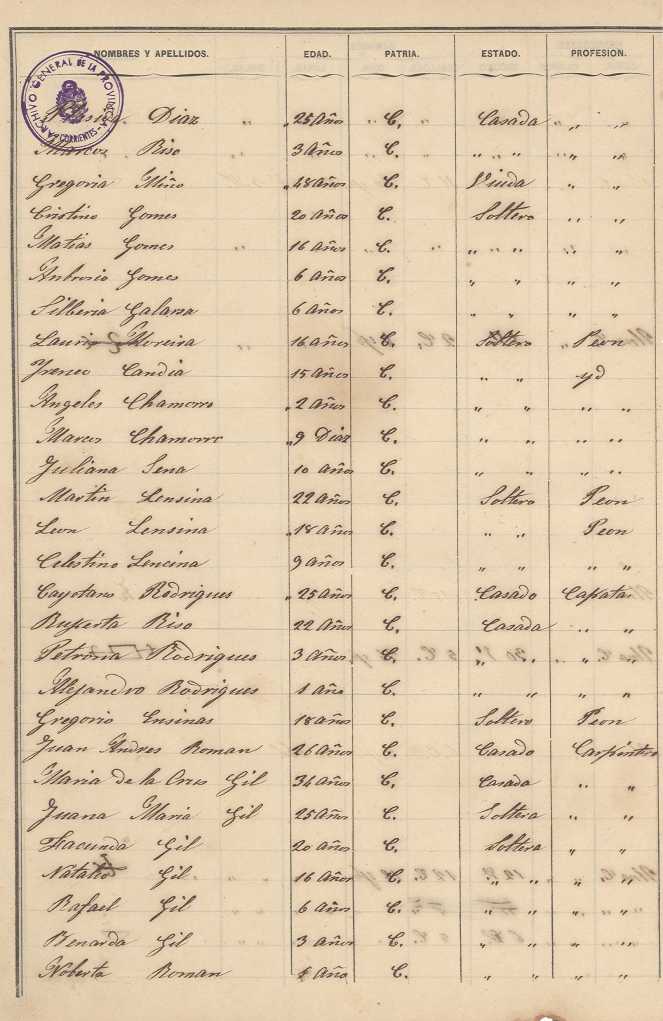 NOMBRES Y APELLIDOS. EDAD. PATRIA. ESTADO. PROFESION.
ARCHIVO GENERAL DE LA PROVINCIA CORRIENTES
Diaz " " 25 Años " C. " Casada " " "
Marcos Riso " 3 Años C. " " " " "
Gregoria Miño " 48 Años C. Viuda " "
Cristino Gomes 20 Años C. Soltero " "
Matias Gomes " 16 Años C. " " " " " "
Ambrosio Gomes 6 Años C. " " " "
Silberia Galarsa 6 Años C. " " " "
Moreira 16 Años C. Soltero Peon
Yreneo Candia 15 Años C. " " yd
Angeles Chamorro 2 Años C. " " " "
Marcos Chamorro 9 Diaz C. " " " "
Juliana Sena 10 Años C. " " " "
Martin Lensina 22 Años C. Soltero Peon
Leon Lensina 18 Años C. " " Peon
Celestino Lencina 9 Años C. " " " "
Cayetano Rodrigues 25 Años C. Casado Capatas
Ruperta Riso 22 Años C. Casada " "
Petrona Rodrigues 3 Años C. " " " "
Alejandro Rodrigues 1 Año C. " " " "
Gregorio Ensinas 18 Años C. Soltero Peon
Juan Andres Roman 26 Años C. Casado Carpintero
Maria de la Crus Gil 34 Años C. Casada " "
Juana Maria Gil 25 Años C. Soltera " "
Facunda Gil 20 Años C. Soltera " "
Gil 16 Años C. " " " "
Rafael Gil 6 Años C. " " " "
Benarda Gil 3 Años C. " " " "
Noberta Roman Año C. " " " "